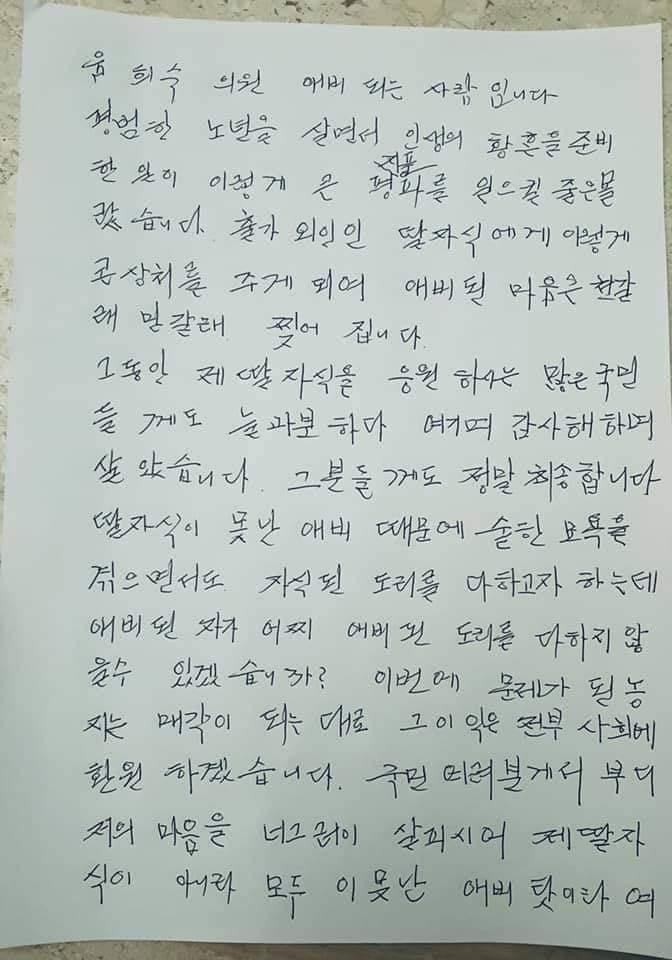 윤 희숙 의원 애비 되는 사람 입니다
평범한 노년을 살면서 인생의 황혼을 준비
한 일이 이렇게 큰 평파를 일으킬 줄은몰
랐 습니다. 출가 외인인 딸자식 에게 이렇게
큰상처를 주게 되여 애비된 마음은 천갈
래 만갈래 찢어 집니다.
그동안 제 딸 자식을 응원 하시는 많은국민
들 께도 늘과분 하다 여기며 감사해 하며
살 았습니다. 그분들 께도 정말 죄송합니다
딸자식이 못난 애비 때문에 숱한 모욕을
겪으면서도 자식된 도리를 다하고자 하는데
애비된 자가 어찌 애비된 도리를 다하지 않
을수 있겠 습니까? 이번에 문제가 된 농
지는 매각이 되는 대로 그 이익은 전부 사회에
환원 하겠습니다. 국민 여러분게서 부디
저의 마음을 너그러이 살피시어 제 딸자
식이 아니라 모두 이 못난 애비 탓이라 여